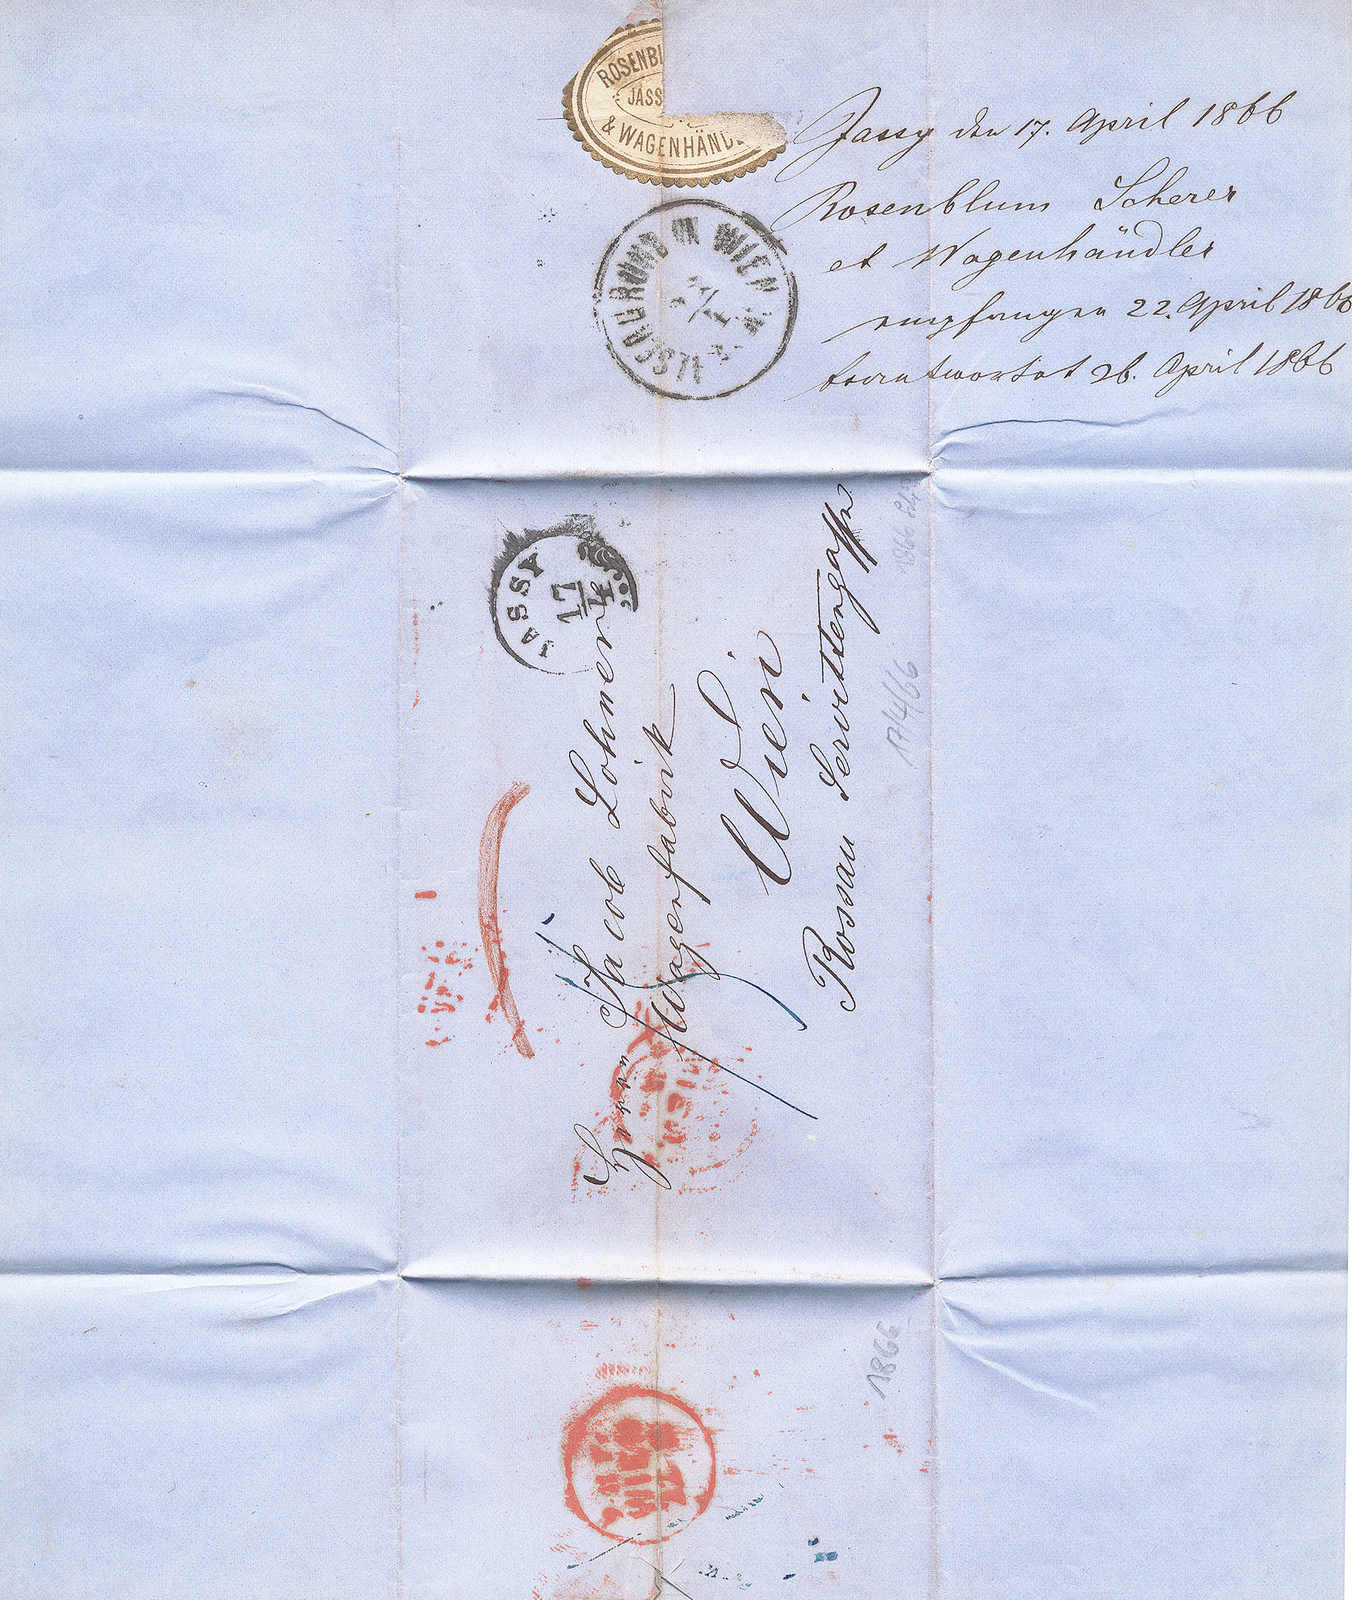 ROSENBL
JASS
& WAGENHÄND
Jassy den 17. April 1866
Rosenblum Scherer
et Wagenhändler
empfangen 22. April 1866
beantwortet 26. April 1866
ALSERGRUND IN WIEN
JASSY
17/4
Herrn Jacob Lohner
Wagenfabrik
Wien
Rossau Servittengasse
1866
17/4/66
1866